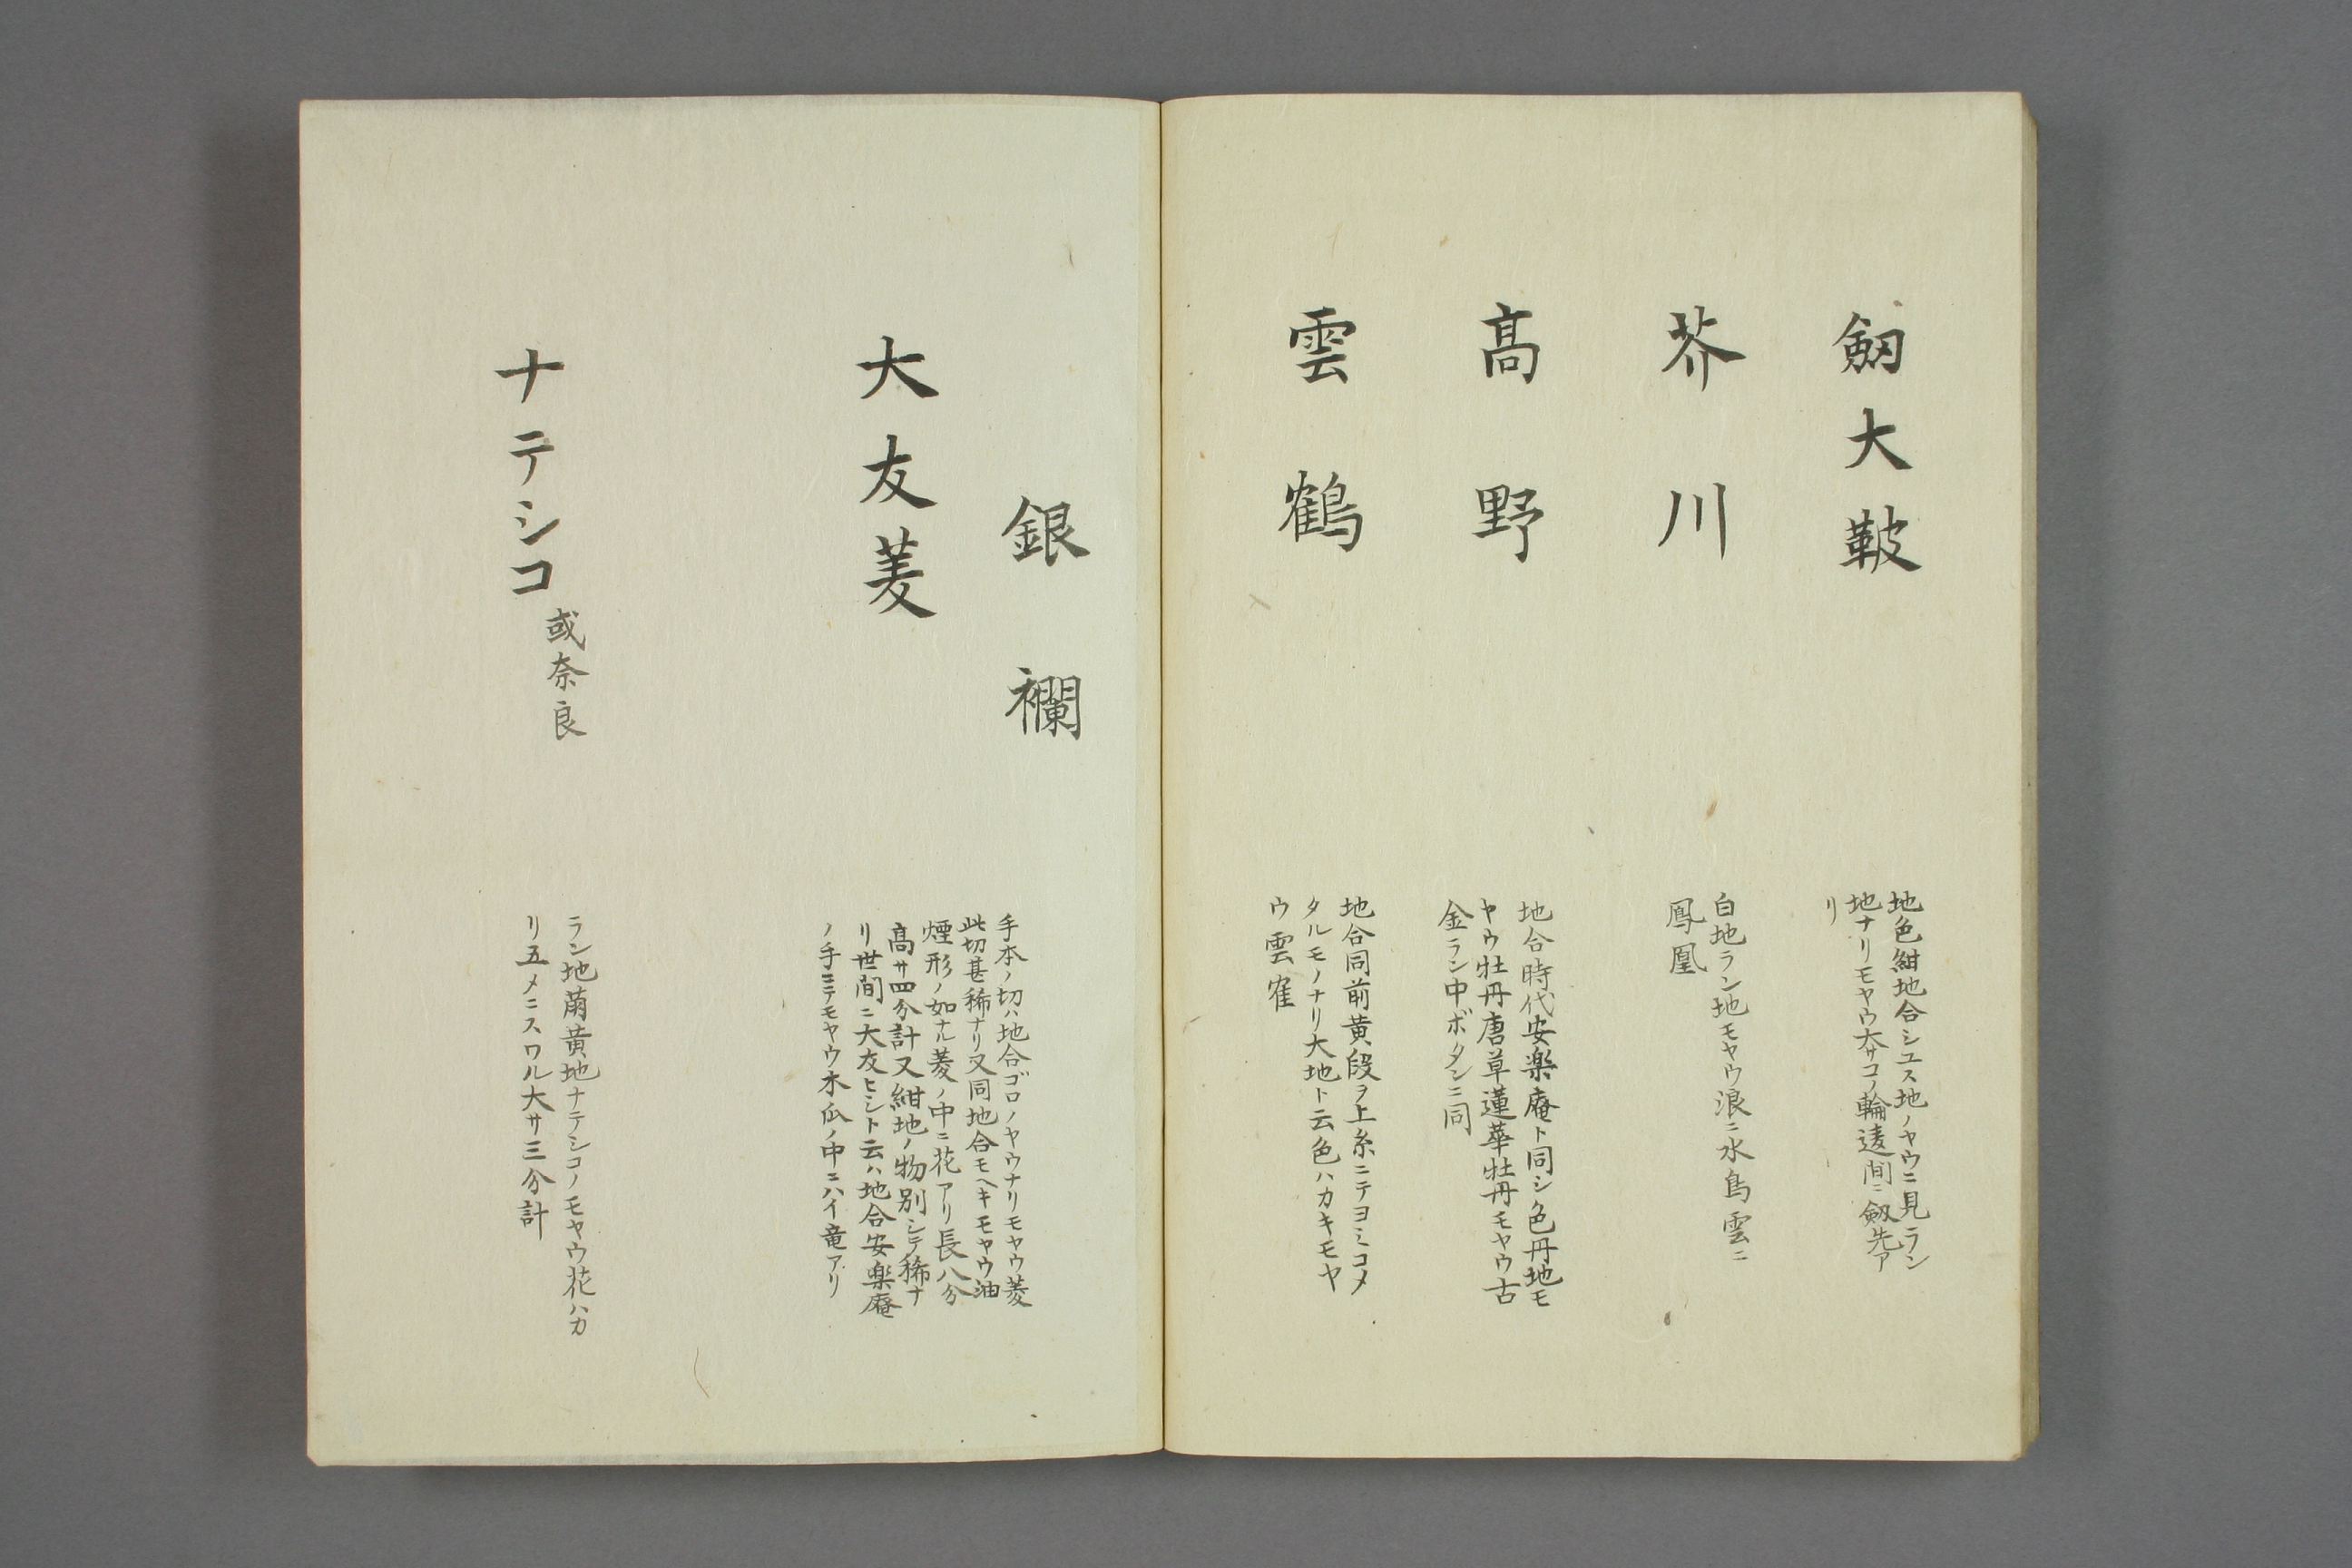 釼大皷
地色紺地合シユス地ノヤウニ見ラン
地ナリモヤウ大サコノ輪違間ニ釼先ア
リ
芥川
白地ラン地モヤウ浪ニ水鳥雲ニ
鳳凰
髙野
地合時代安楽庵ト同シ色丹地モ
ヤウ牡丹唐草蓮華牡丹モヤウ古
金ラン中ボタンニ同
雲鶴
地合同前黄段ヲ上糸ニテヨミコメ
タルモノナリ大地ト云色ハカキモヤ
ウ雲寉
銀襴
大友菱
手本ノ切ハ地合ゴロノヤウナリモヤウ菱
此切甚稀ナリ又同地合モヘキモヤウ油
煙形ノ如ナル菱ノ中ニ花アリ長八分
髙サ四分計又紺地ノ物別シテ稀ナ
リ世間ニ大友ヒシト云ハ地合安楽庵
ノ手ニテモヤウ木瓜ノ中ニハイ竜アリ
ナテシコ或奈良
ラン地萠黄地ナテシコノモヤウ花ハカ
リ五メニスワル大サ三分計